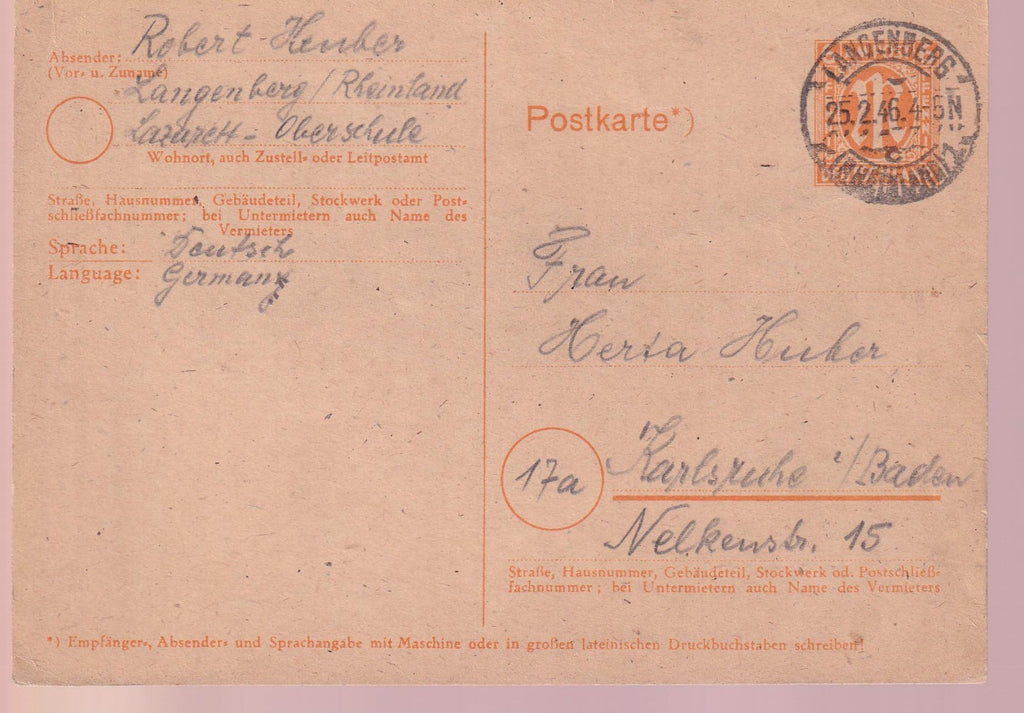 Absender:
(Vor- u. Zuname)
Robert Heuber
Langenberg / Rheinland
Lazarett - Oberschule
Wohnort, auch Zustell- oder Leitpostamt
Straße, Hausnummer, Gebäudeteil, Stockwerk oder Post-
schließfachnummer; bei Untermietern auch Name des
Vermieters
Sprache: Deutsch
Language: Germany
Postkarte*)
LANGENBERG
25.2.46.4-5N
c
(RHEINLAND) 1
Frau
Herta Huber
17a
Karlsruhe i/Baden
Nelkenstr. 15
Straße, Hausnummer, Gebäudeteil, Stockwerk od. Postschließ-
fachnummer; bei Untermietern auch Name des Vermieters
*) Empfänger-, Absender- und Sprachangabe mit Maschine oder in großen lateinischen Druckbuchstaben schreiben!